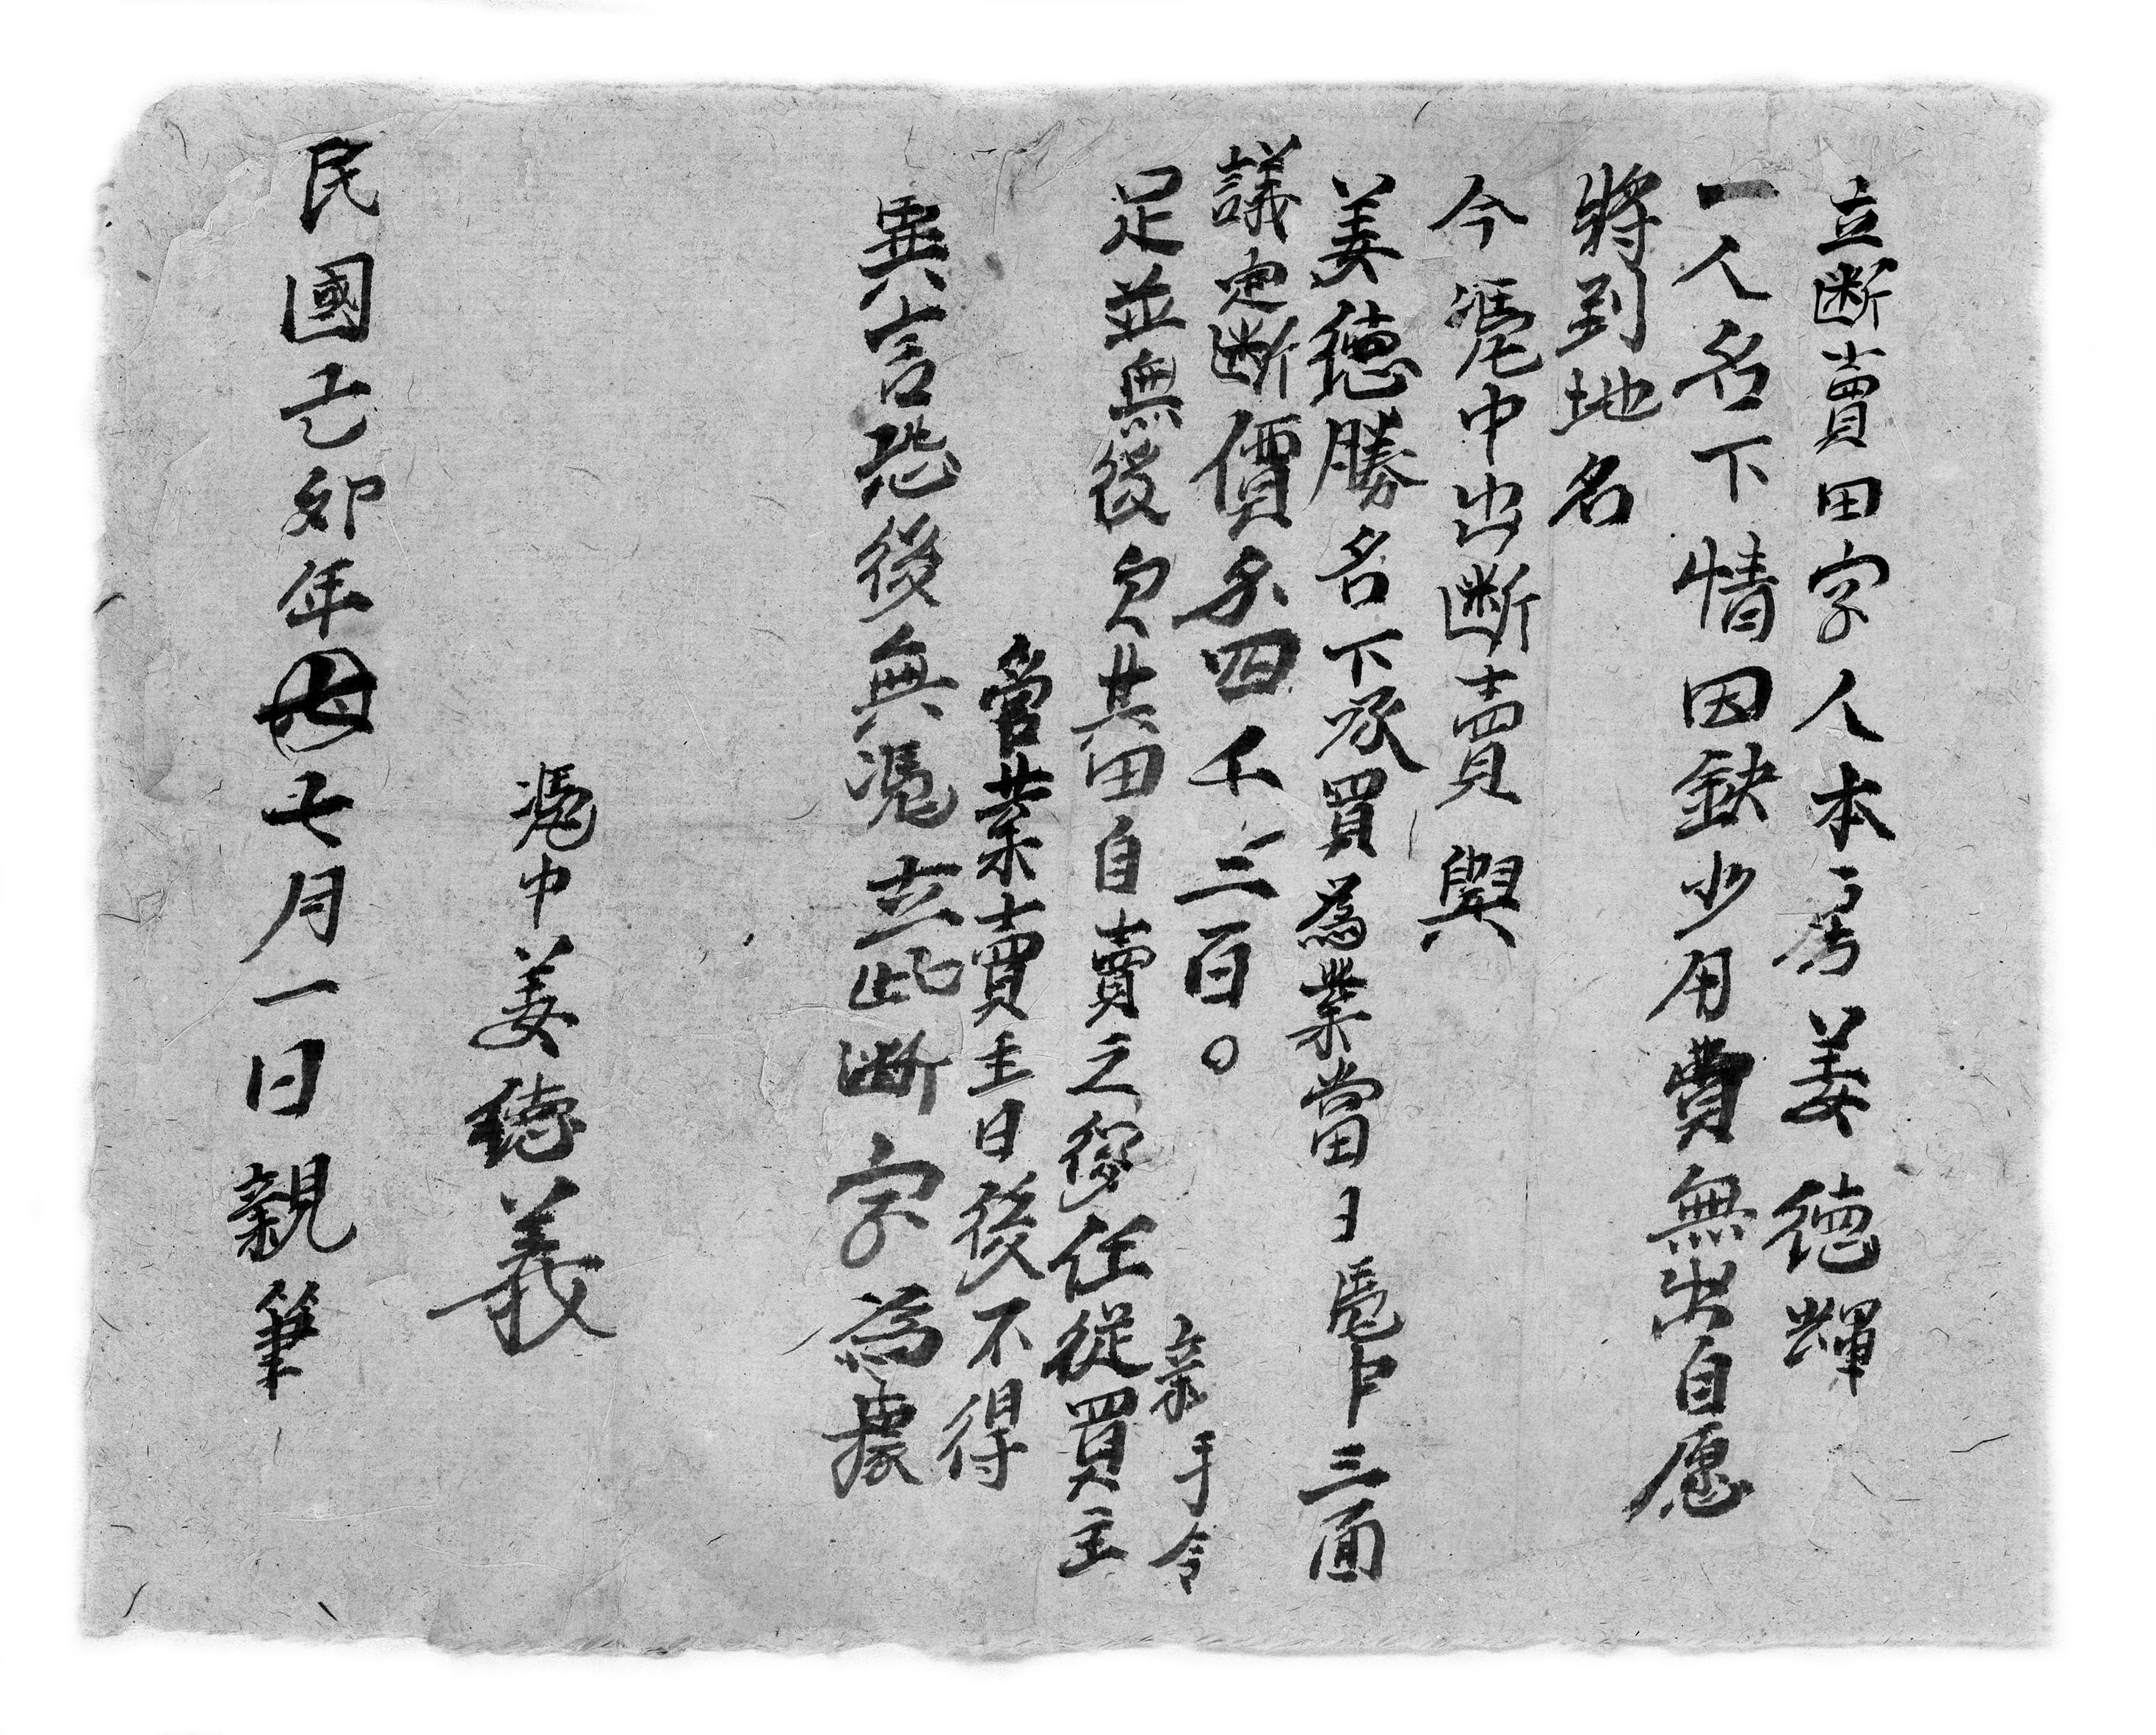 立断賣田字人本房姜德輝
一人名下情因缺少用費無出自愿
將到地名
今憑中出断賣與
姜德勝名下承買為業當日憑中三面
議定断價錢四千三百。親手令
足並無後欠其田自賣之後任從買主
管業賣主日後不得
異言恐後無憑立此断字為據
憑中姜德義
民國己卯年七月一日親筆